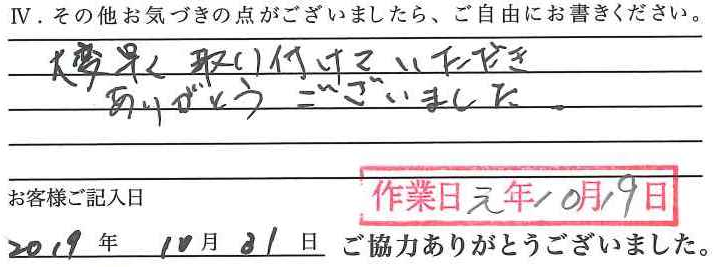 Ⅳ．その他お気づきの点がございましたら、ご自由にお書きください。
大変早く取り付けていただき
ありがとうございました。
お客様ご記入日
作業日元年10月19日
2019年10月31日 ご協力ありがとうございました。